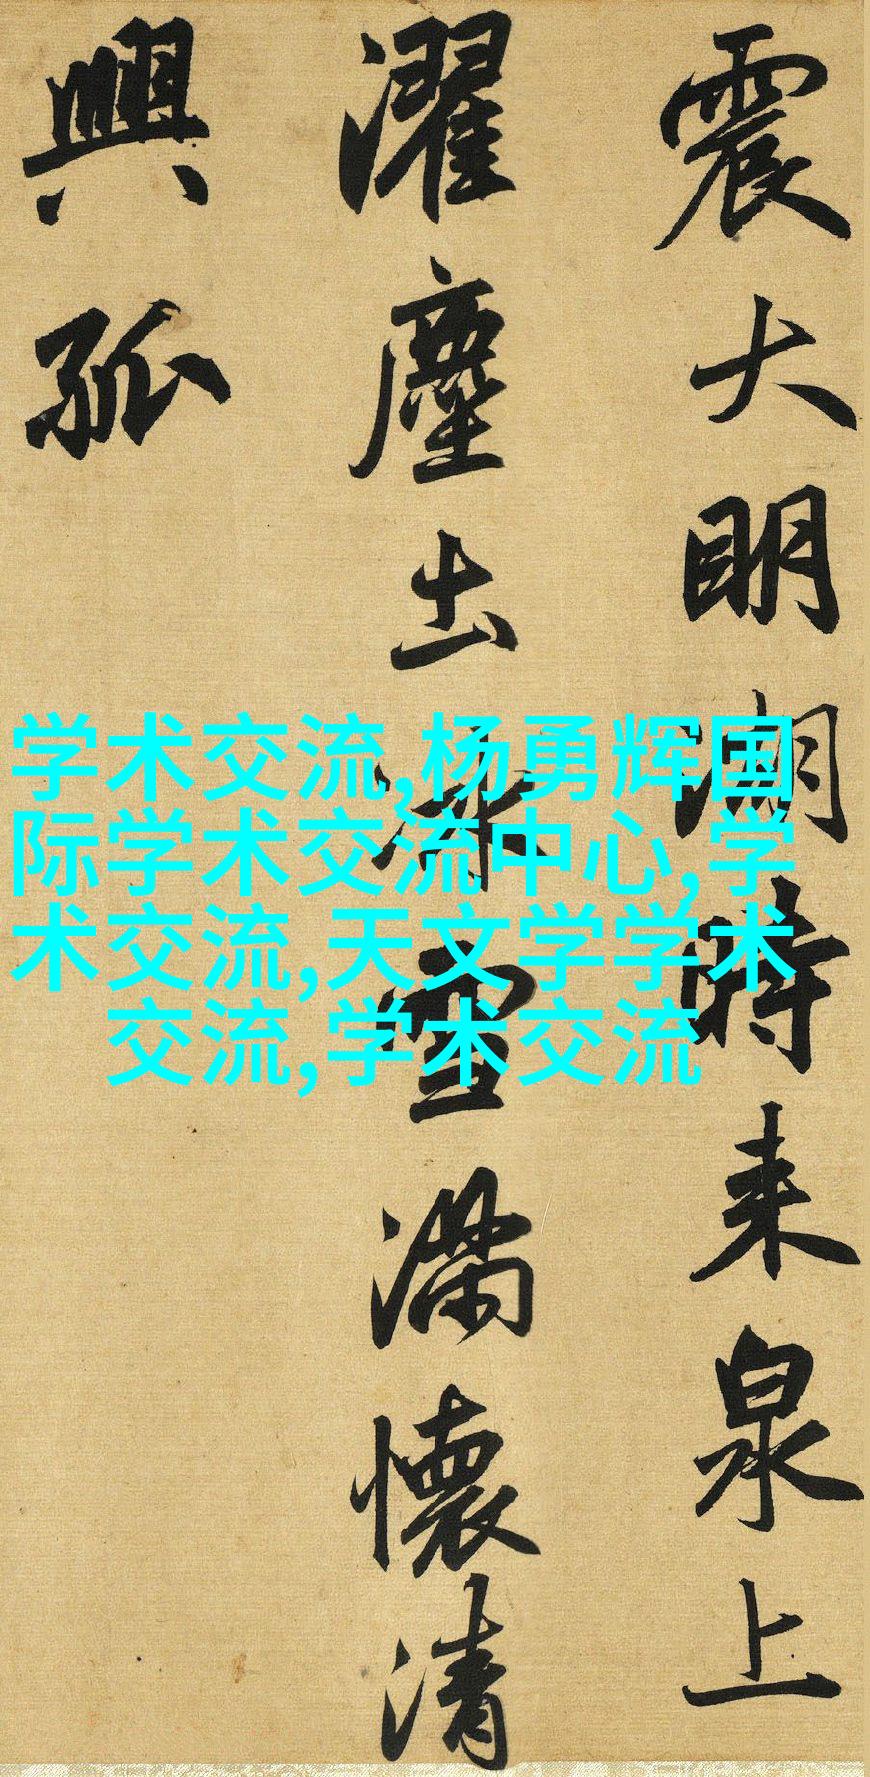 震大明湖時来泉上
濯塵土冰雪滿懷清
興孤
学术交流,杨勇辉国
际学术交流中心,学
术交流,天文学学术
交流,学术交流